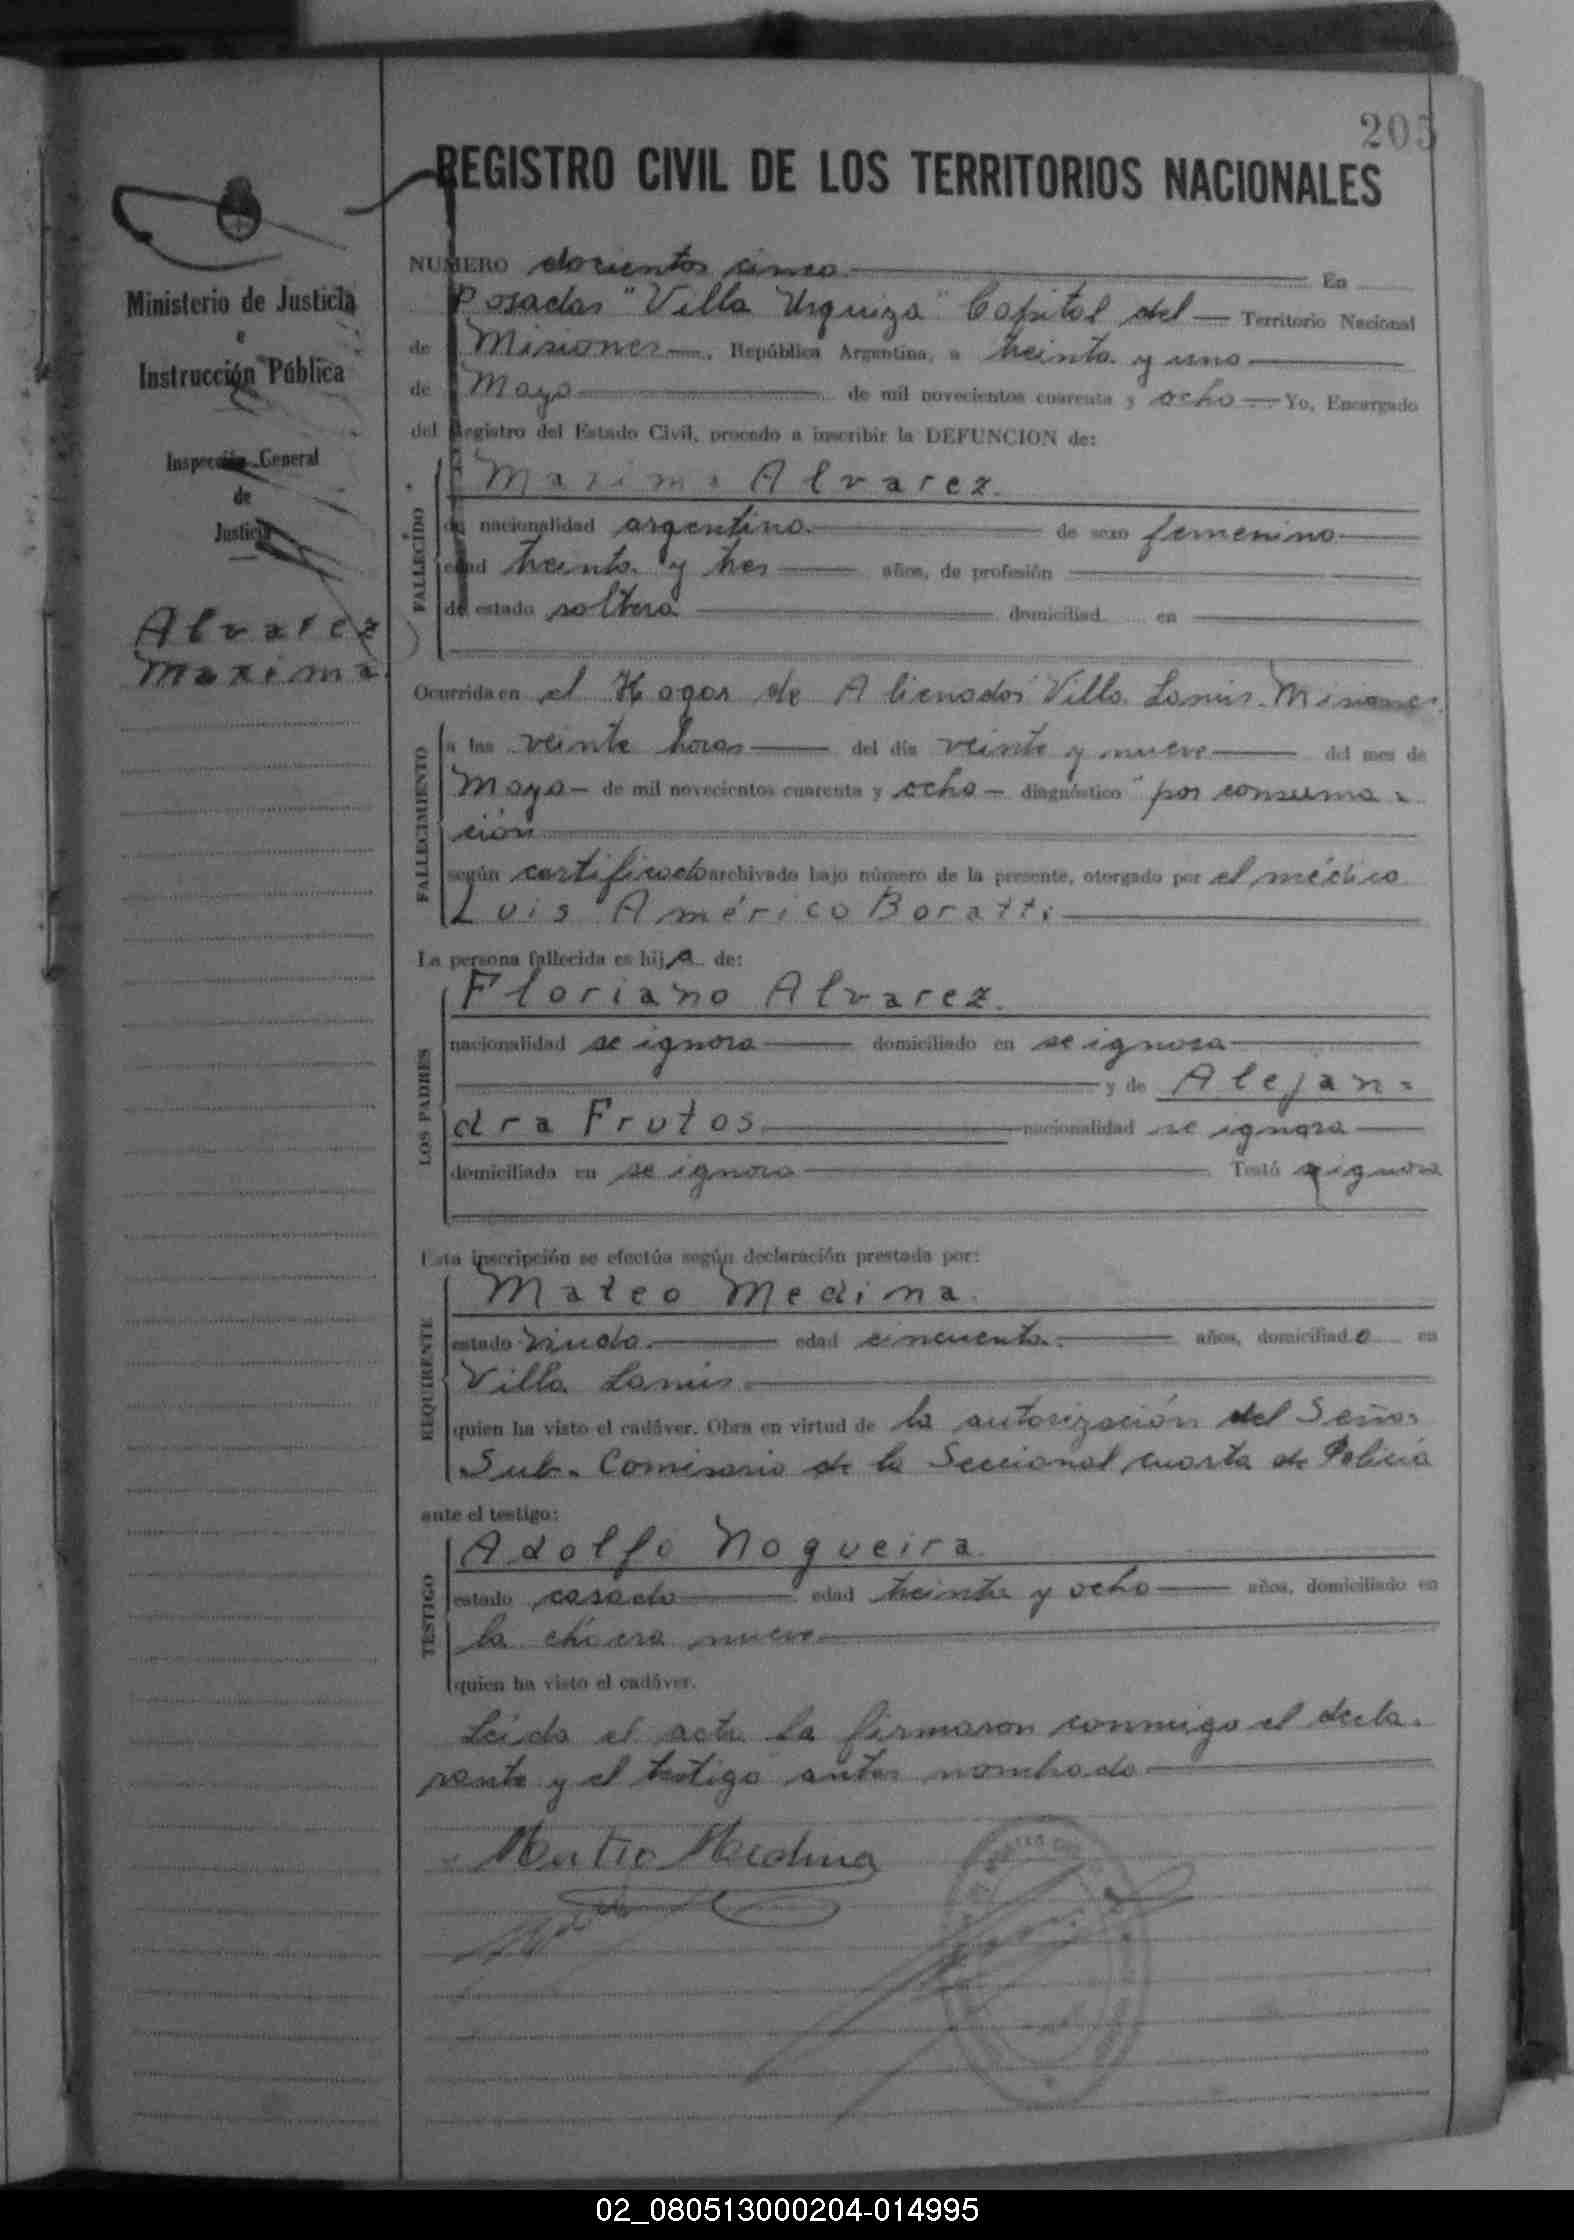 205
REGISTRO CIVIL DE LOS TERRITORIOS NACIONALES
Ministerio de Justicia
e
Instrucción Pública
Inspección General
de
Justicia
Alvarez
Maxima
NUMERO docientos cinco En
Posadas "Villa Urquiza" Capital del Territorio Nacional
de Misiones, República Argentina, a treinta y uno
de Mayo de mil novecientos cuarenta y ocho Yo, Encargado
del Registro del Estado Civil, procedo a inscribir la DEFUNCION de:
FALLECIDO
Maxima Alvarez.
de nacionalidad argentina de sexo femenino
edad treinta y tres años, de profesión
de estado soltera domiciliad en
Ocurrida en el Hogar de Alienados Villa Lanús. Misiones.
FALLECIMIENTO
a las veinte horas del día veinte y nueve del mes de
Mayo de mil novecientos cuarenta y ocho diagnóstico "por consuma-
ción
según certificado archivado bajo número de la presente, otorgado por el médico
Luis Américo Boratti
La persona fallecida es hija de:
LOS PADRES
Floriano Alvarez.
nacionalidad se ignora domiciliado en se ignora
y de Alejan-
dra Frutos nacionalidad se ignora
domiciliada en se ignora Testó se ignora
Esta inscripción se efectúa según declaración prestada por:
REQUIRENTE
Mateo Medina.
estado viudo edad cincuenta años, domiciliado en
Villa Lanús
quien ha visto el cadáver. Obra en virtud de la autorización del Señor
Sub-Comisario de la Seccional cuarta de Policía
ante el testigo:
TESTIGO
Adolfo Nogueira.
estado casado edad treinta y ocho años, domiciliado en
la chacra nueve
quien ha visto el cadáver.
Leída el acta la firmaron conmigo el decla-
rante y el testigo antes nombrado
Mateo Medina
02_080513000204-014995